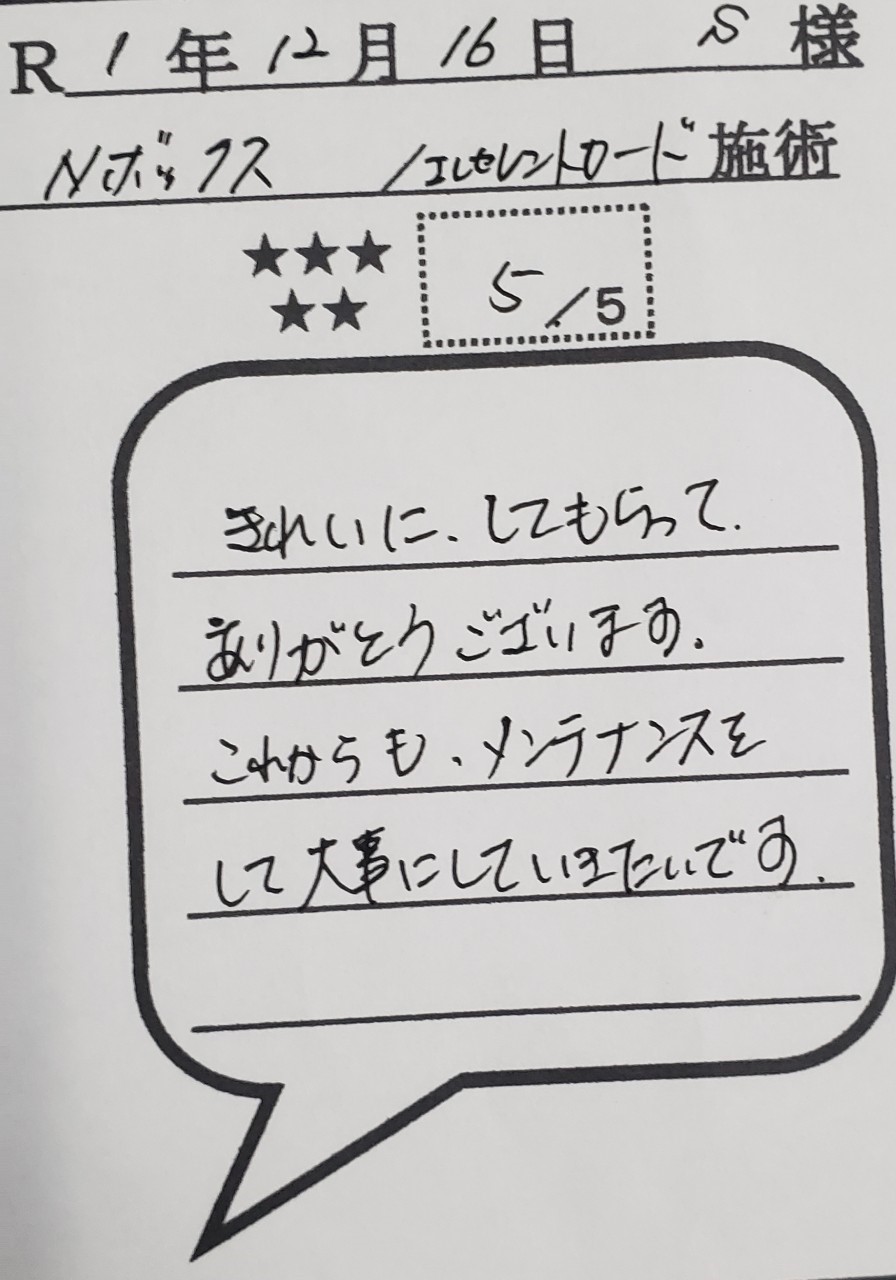 R 1年12月16日 S様
Nボックス /エレセレントカード施術
★★★
★★
5/5
きれいに、してもらって、
ありがとうございます。
これからも、メンテナンスを
して大事にしていきたいです。